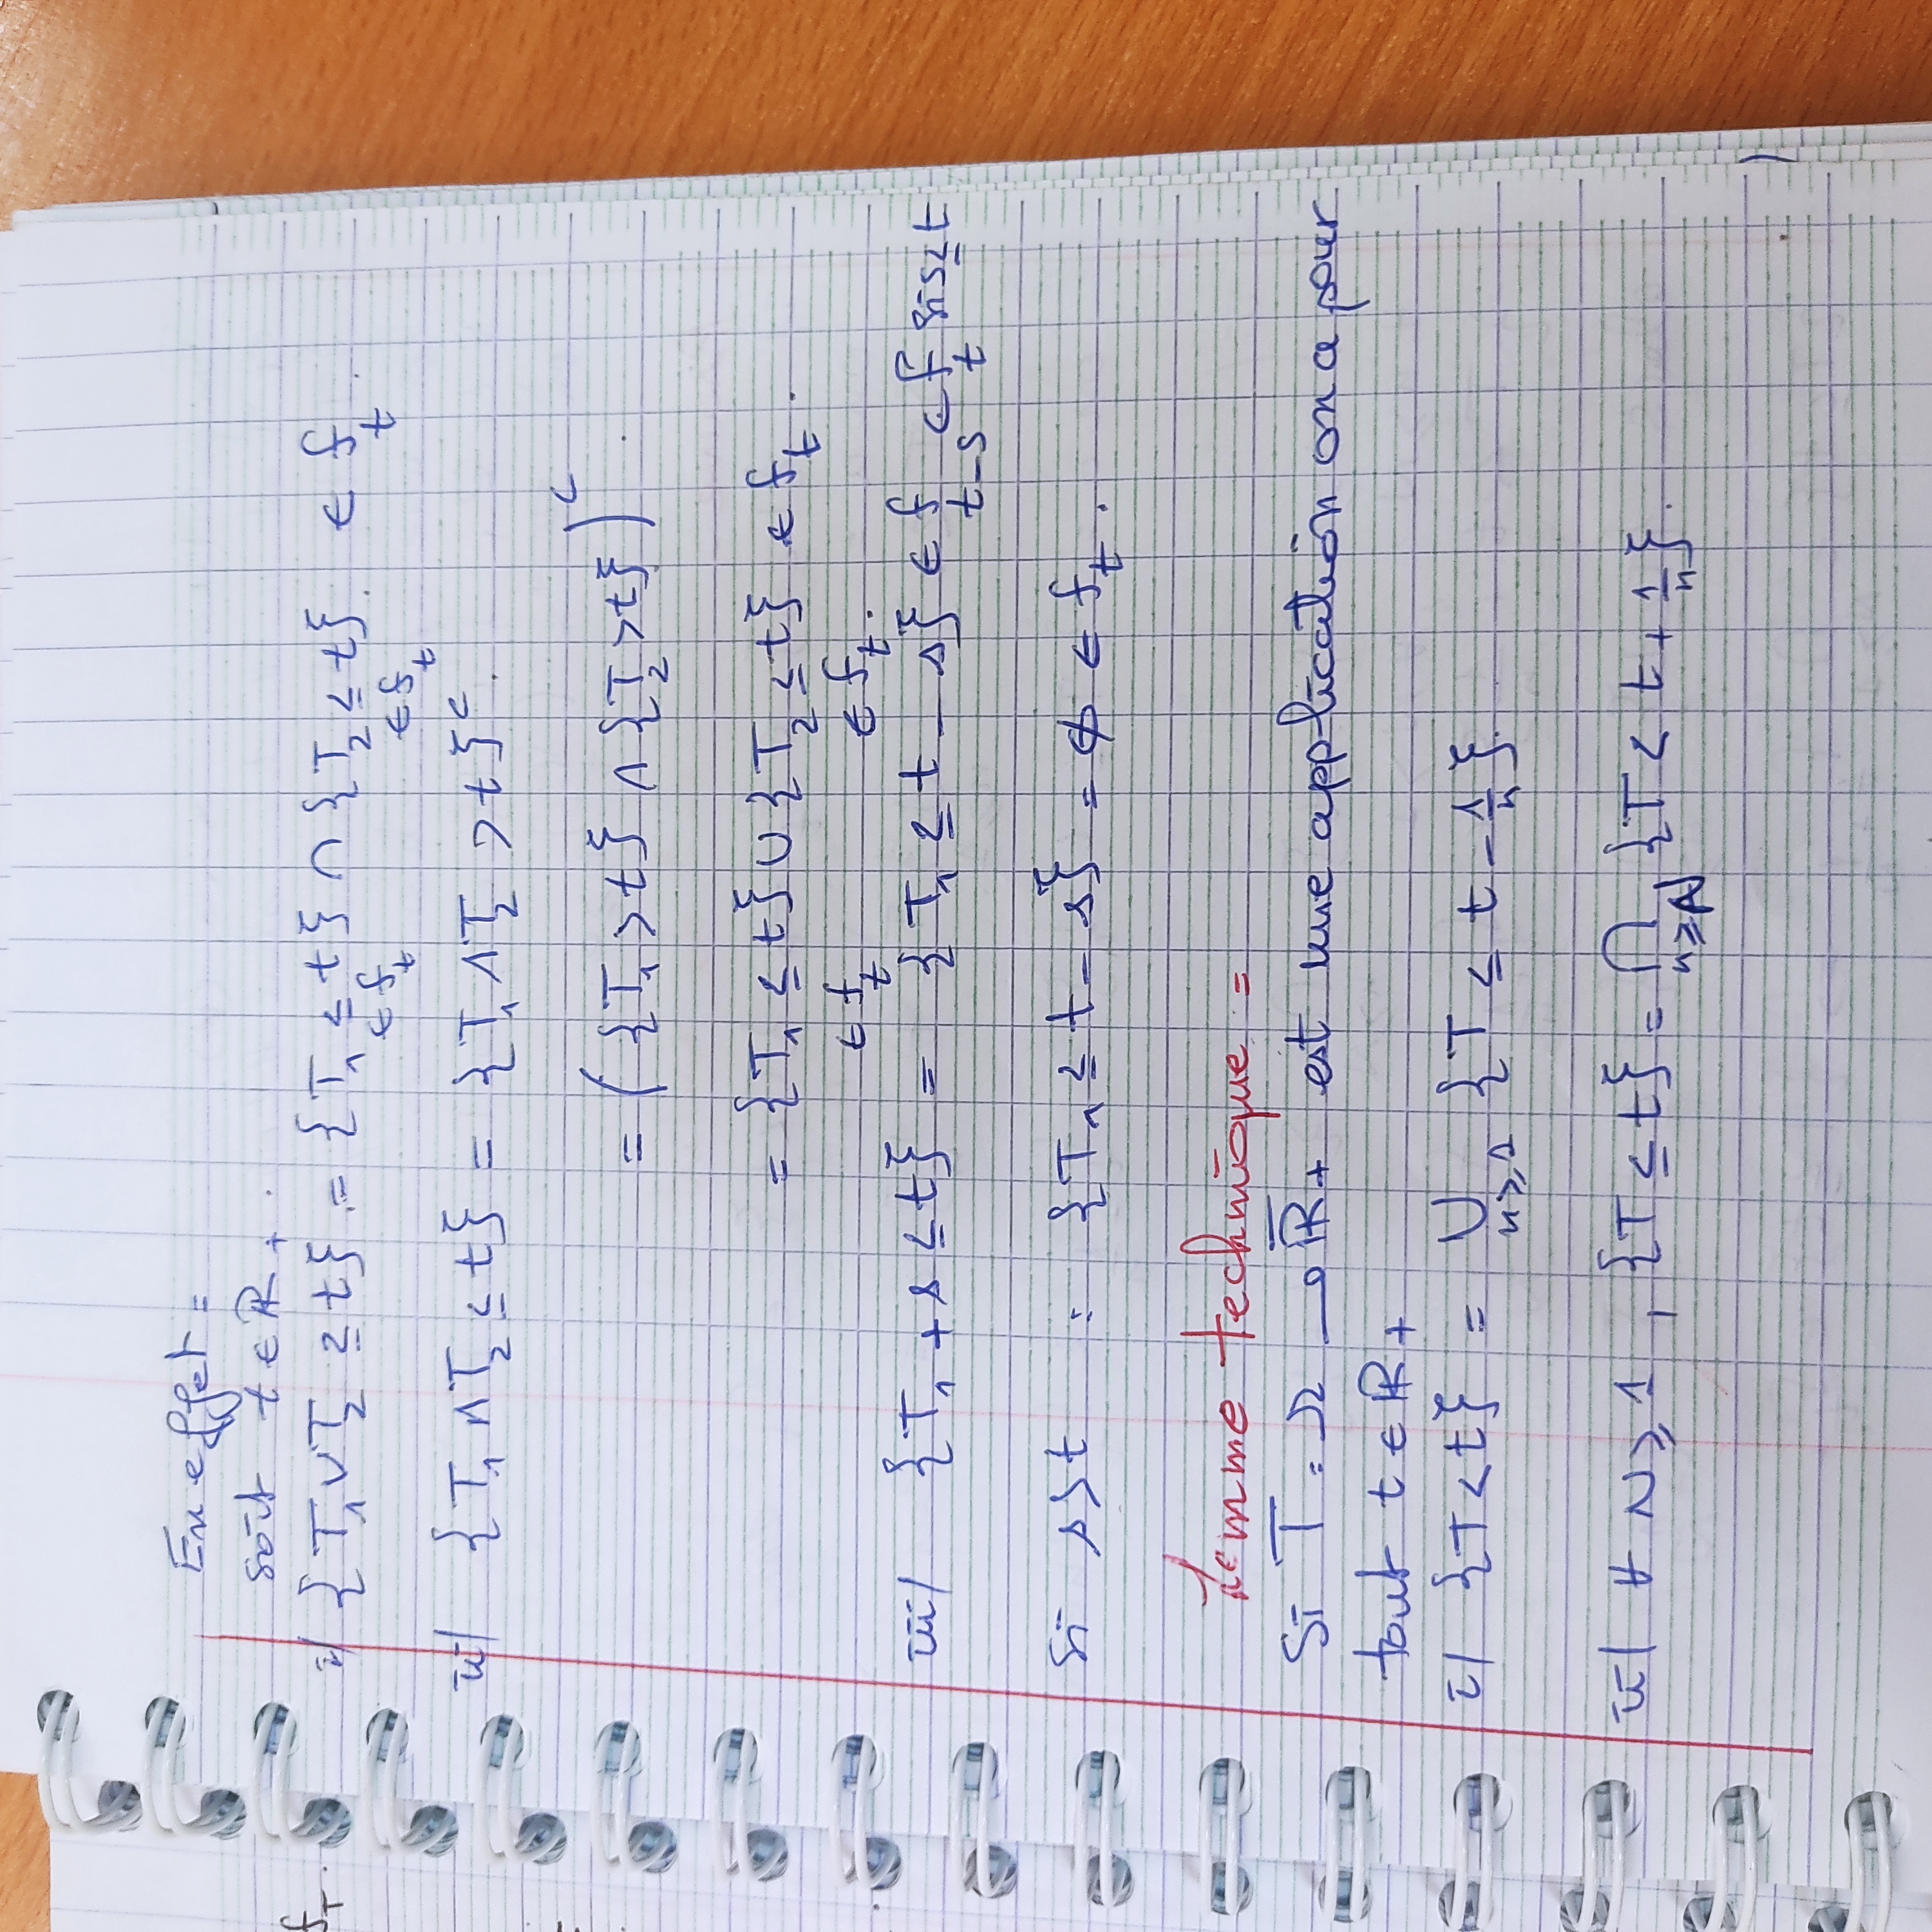 En effet :
soit t ∈ ℝ₊.
i/ {T₁ ∨ T₂ ≤ t} = {T₁ ≤ t} ∩ {T₂ ≤ t}. ∈ f_t.
∈ f_t ∈ f_t
ii/ {T₁ ∧ T₂ ≤ t} = {T₁ ∧ T₂ > t}ᶜ.
= ({T₁ > t} ∩ {T₂ > t})ᶜ.
= {T₁ ≤ t} ∪ {T₂ ≤ t} ∈ f_t.
∈ f_t ∈ f_t.
iii/ {T₁ + s ≤ t} = {T₁ ≤ t - s} ∈ f_{t-s} ⊂ f_t si s ≤ t
si s > t : {T₁ ≤ t - s} = ∅ ∈ f_t.
Lemme technique :
Si T : Ω → ℝ̄₊ est une application on a pour
tout t ∈ ℝ₊
i/ {T < t} = ∪_{n≥1} {T ≤ t - 1/n}.
ii/ ∀ N ≥ 1, {T ≤ t} = ∩_{n≥N} {T < t + 1/n}.
f_T.